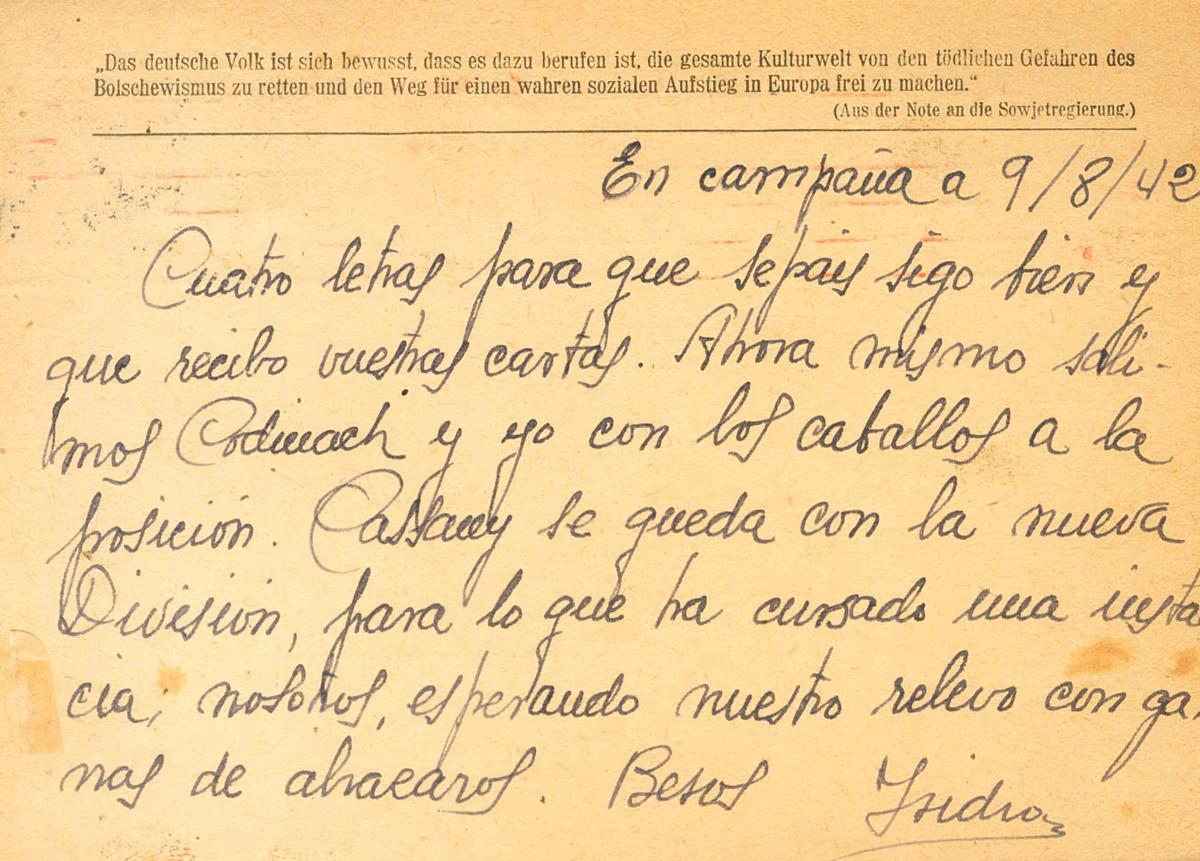 „Das deutsche Volk ist sich bewusst, dass es dazu berufen ist, die gesamte Kulturwelt von den tödlichen Gefahren des
Bolschewismus zu retten und den Weg für einen wahren sozialen Aufstieg in Europa frei zu machen.“
(Aus der Note an die Sowjetregierung.)
En campaña a 9/8/42
Cuatro letras para que sepais sigo bien y
que recibo vuestras cartas. Ahora mismo sali-
mos Codinach y yo con los caballos a la
posición. Cassany se queda con la nueva
División, para lo que ha cursado una insta
cia; nosotros, esperando nuestro relevo con ga-
nas de abrazaros. Besos Isidro